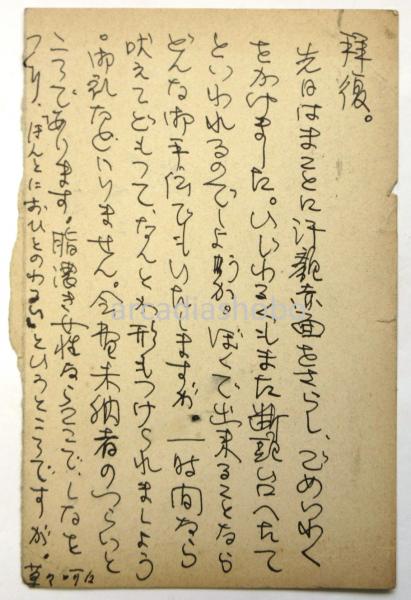 拝復。
先日はまことに汗顔赤面をさらし、ごめいわく
をかけました。いじわるくもまた断親口へたて
といわれるのでしょうか ぼくで出来ることなら
どんな御手伝でもいたしますが、一時間なら
吠えてどもつて、なんと形もつけられましよう
。御礼などいりません。会費未納者のつらいと
ころであります。脂濃き女性ならここで、しなを
つくり、ほんとにおひとのわるい、というところですが。
草々
arcadiashobo